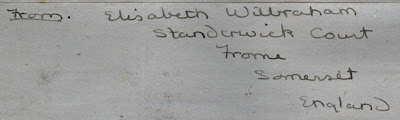 From. Elisabeth Wilbraham
Standerwick Court
Frome
Somerset
England